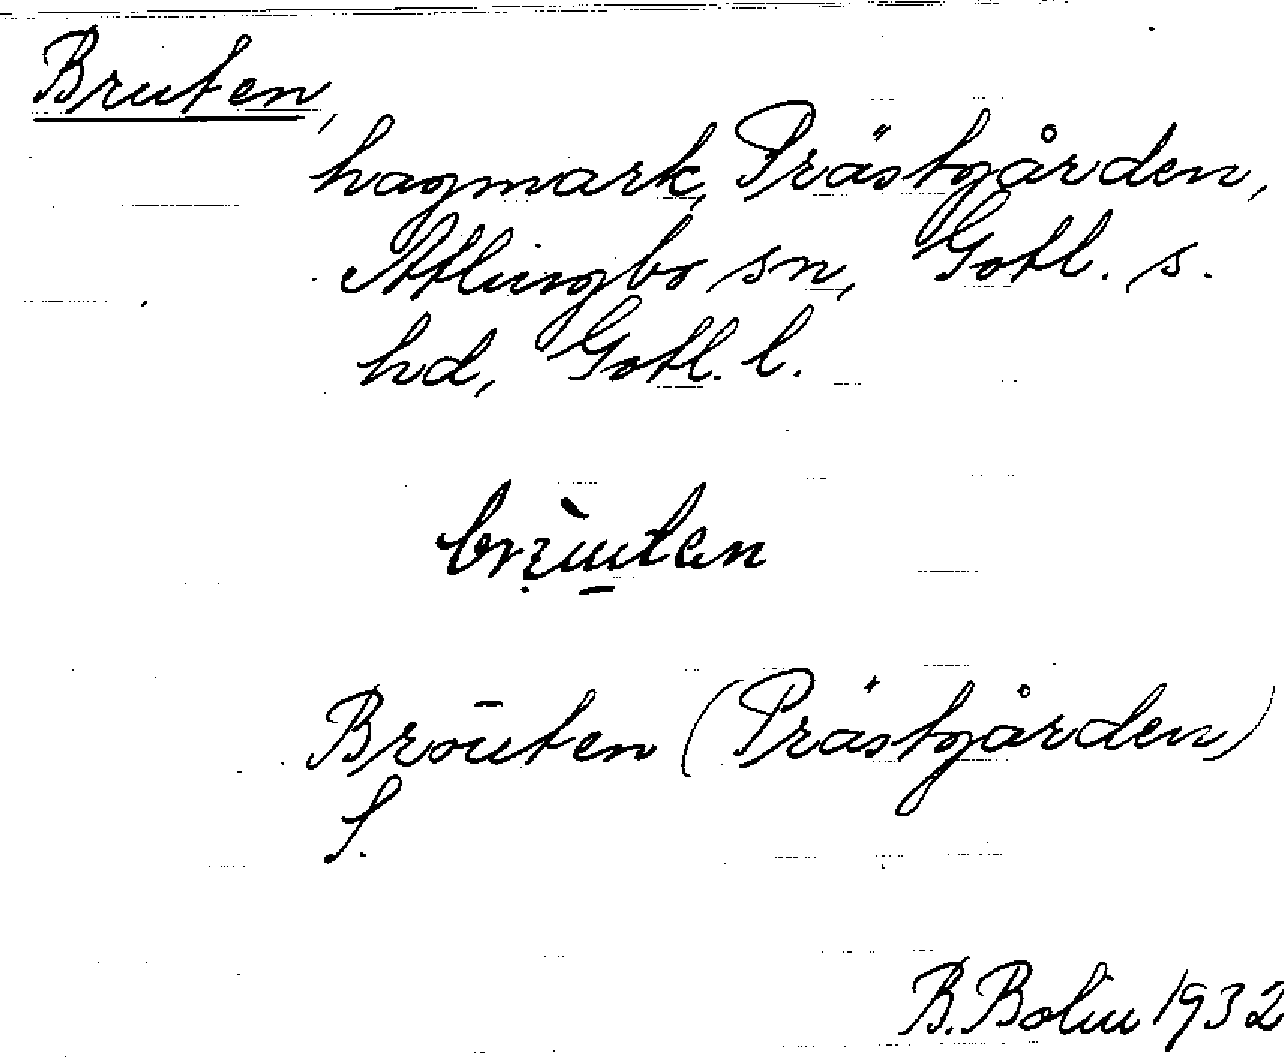 Bruten,
hagmark, Prästgården,
Atlingbo sn, Gotl. s.
hd, Gotl. l.
Brōuten (Prästgården)
S.
B. Bolin 1932